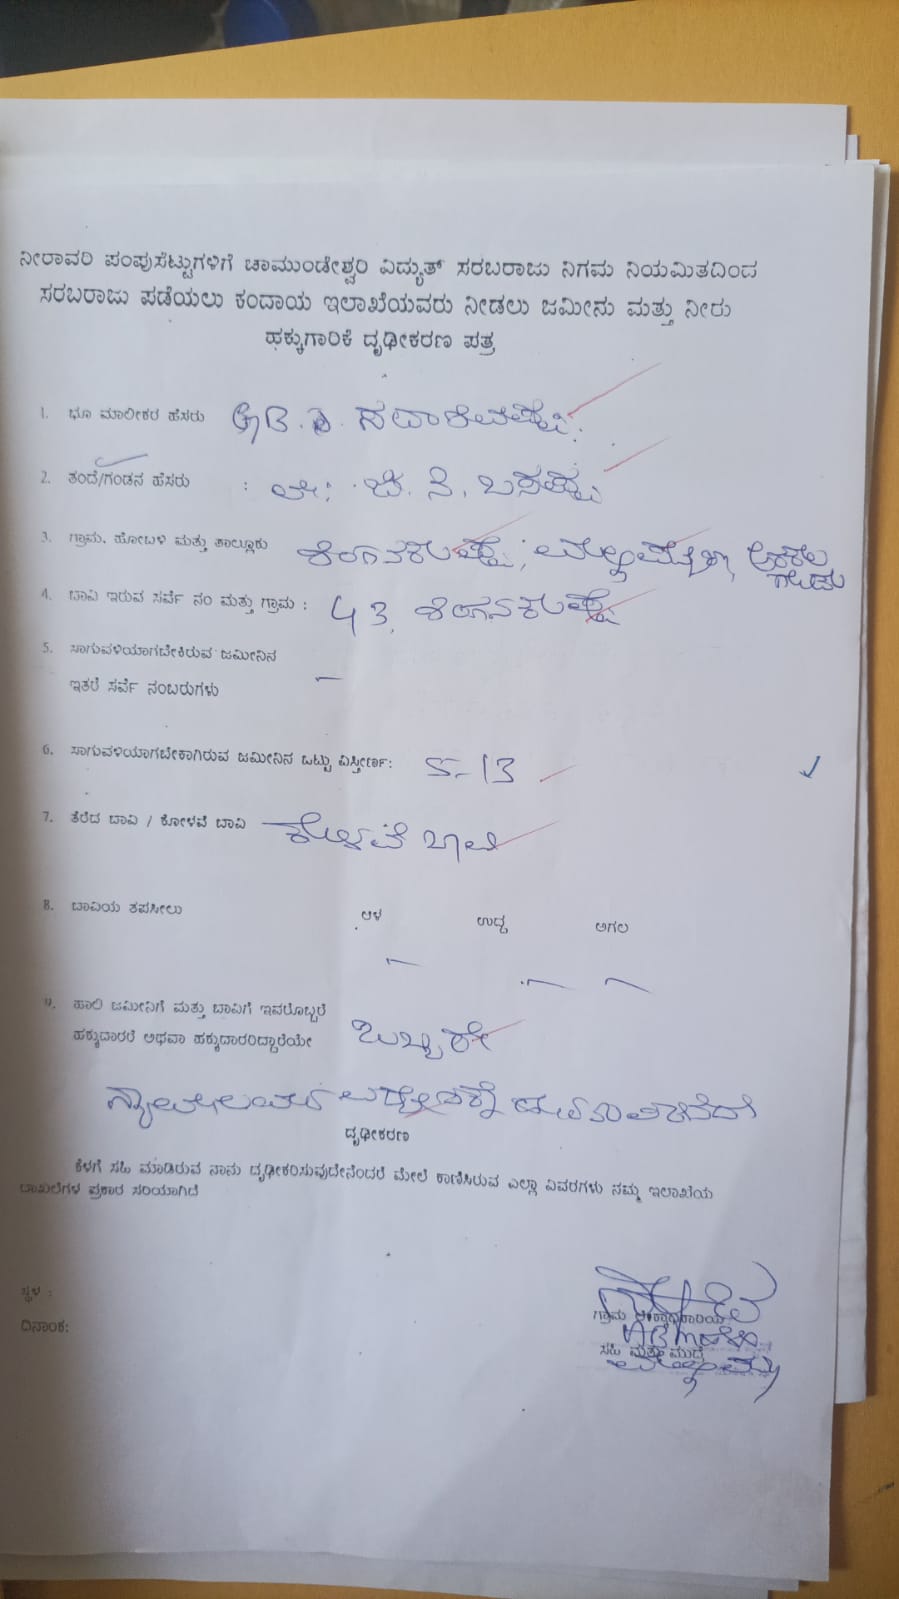 ನೀರಾವರಿ ಪಂಪುಸೆಟ್ಟುಗಳಿಗೆ ಚಾಮುಂಡೇಶ್ವರಿ ವಿದ್ಯುತ್ ಸರಬರಾಜು ನಿಗಮ ನಿಯಮಿತದಿಂದ
ಸರಬರಾಜು ಪಡೆಯಲು ಕಂದಾಯ ಇಲಾಖೆಯವರು ನೀಡಲು ಜಮೀನು ಮತ್ತು ನೀರು
ಹಕ್ಕುಗಾರಿಕೆ ದೃಢೀಕರಣ ಪತ್ರ
1. ಭೂ ಮಾಲೀಕರ ಹೆಸರು GB. ಸದಾಶಿವಪ್ಪ.
2. ತಂದೆ/ಗಂಡನ ಹೆಸರು : ಲೇ: ಜಿ. ನಿ. ಬಸಪ್ಪ
3. ಗ್ರಾಮ, ಹೋಬಳಿ ಮತ್ತು ತಾಲ್ಲೂಕು
4. ಬಾವಿ ಇರುವ ಸರ್ವೆ ನಂ ಮತ್ತು ಗ್ರಾಮ : 43,
5. ಸಾಗುವಳಿಯಾಗಬೇಕಿರುವ ಜಮೀನಿನ
ಇತರೆ ಸರ್ವೆ ನಂಬರುಗಳು —
6. ಸಾಗುವಳಿಯಾಗಬೇಕಾಗಿರುವ ಜಮೀನಿನ ಒಟ್ಟು ವಿಸ್ತೀರ್ಣ: 5-13
7. ತೆರೆದ ಬಾವಿ / ಕೋಳವೆ ಬಾವಿ ಕೊಳವೆ ಬಾವಿ
8. ಬಾವಿಯ ತಪಸೀಲು ಆಳ ಉದ್ದ ಅಗಲ
— — —
9. ಹಾಲಿ ಜಮೀನಿಗೆ ಮತ್ತು ಬಾವಿಗೆ ಇವರೊಬ್ಬರೆ
ಹಕ್ಕುದಾರರೆ ಅಥವಾ ಹಕ್ಕುದಾರರಿದ್ದಾರೆಯೇ ಒಬ್ಬರೇ
ದೃಢೀಕರಣ
ಕೆಳಗೆ ಸಹಿ ಮಾಡಿರುವ ನಾನು ದೃಢೀಕರಿಸುವುದೇನೆಂದರೆ ಮೇಲೆ ಕಾಣಿಸಿರುವ ಎಲ್ಲಾ ವಿವರಗಳು ನಮ್ಮ ಇಲಾಖೆಯ
ದಾಖಲೆಗಳ ಪ್ರಕಾರ ಸರಿಯಾಗಿದೆ
ಸ್ಥಳ :
ಗ್ರಾಮ
ದಿನಾಂಕ:
ಸಹಿ ಮತ್ತು ಮುದ್ರೆ